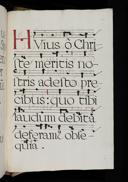 Huius o Chri
ste meritis no
stris adesto pre
cibus: quo tibi
laudum debita
deferam' obse
quia.